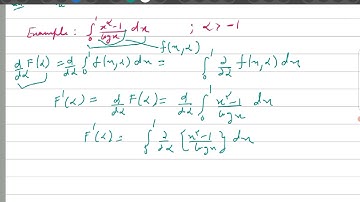 Example : ∫₀¹ (x^α - 1)/(log x) dx ; α > -1
f(x, α)
d/dα F(α) = d/dα ∫₀¹ f(x, α) dx = ∫₀¹ ∂/∂α f(x, α) dx
F'(α) = d/dα F(α) = d/dα ∫₀¹ (x^α - 1)/(log x) dx
F'(α) = ∫₀¹ ∂/∂α [(x^α - 1)/(log x)] dx